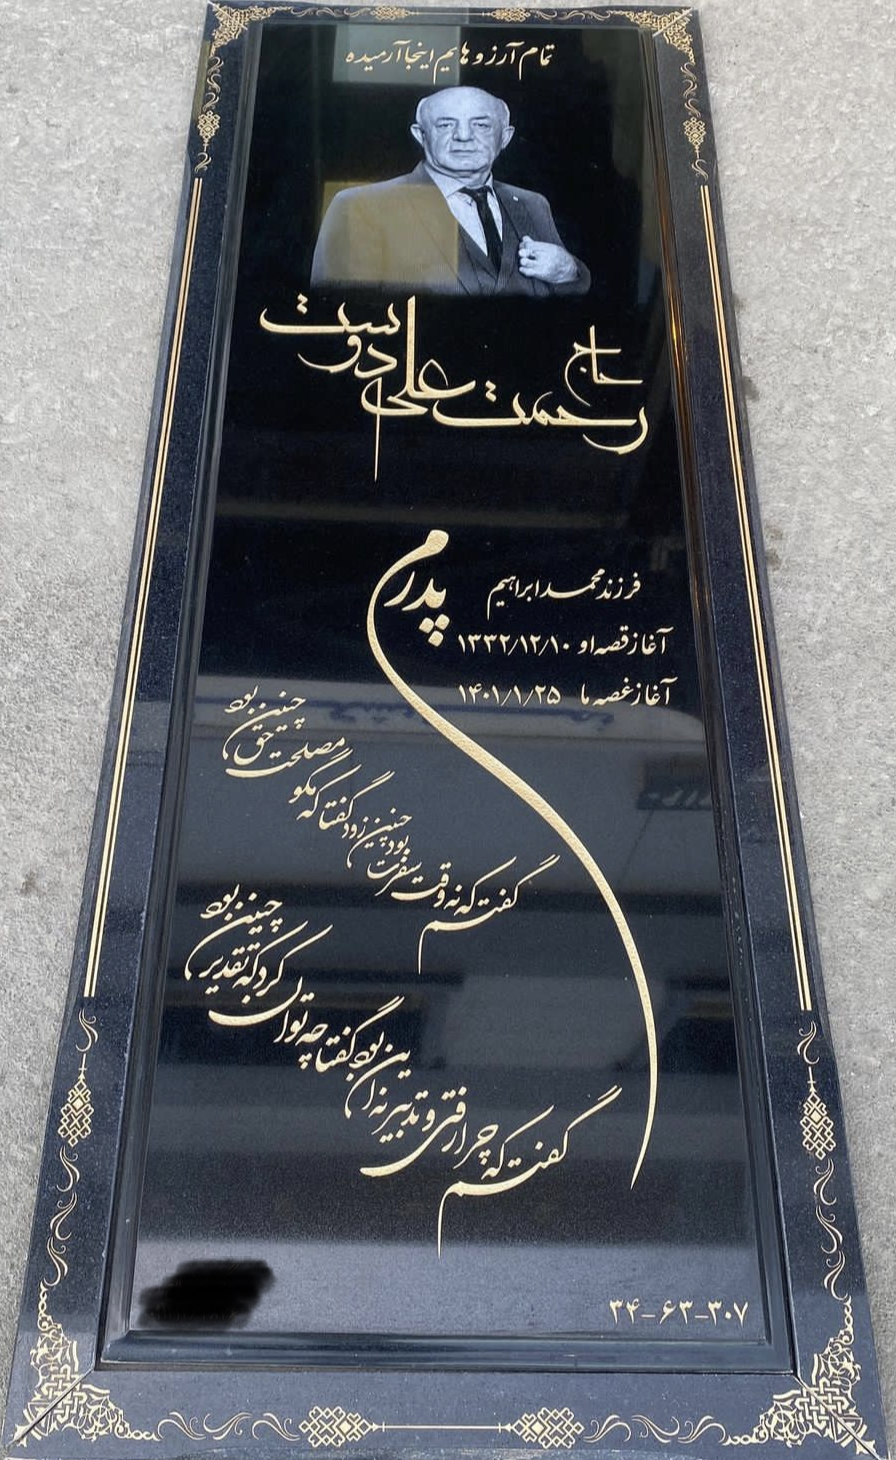 تمام آرزوهایم اینجا آرمیده
حاج
رحمت علی دوست
پدرم
فرزند محمد ابراهیم
آغاز قصه او ۱۳۳۲/۱۲/۱۰
آغاز غصه ما ۱۴۰۱/۱/۲۵
گفتم که نه وقت سفرت بود چنین زود
گفتا که مگو مصلحت حق چنین بود
گفتم که چرا رفتی و تدبیر تو این بود
گفتا چه توان کرد که تقدیر چنین بود
۳۴-۶۳-۳۰۷